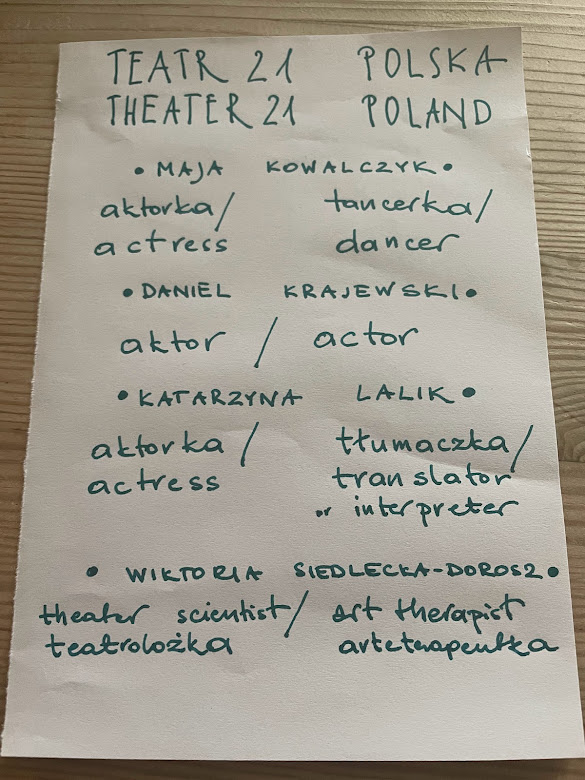 TEATR 21 POLSKA
THEATER 21 POLAND
• MAJA KOWALCZYK •
aktorka/ tancerka/
actress dancer
• DANIEL KRAJEWSKI •
aktor / actor
• KATARZYNA LALIK •
aktorka / tłumaczka/
actress translator
or interpreter
• WIKTORIA SIEDLECKA-DOROSZ •
theater scientist/ art therapist
teatrolożka arteterapeutka